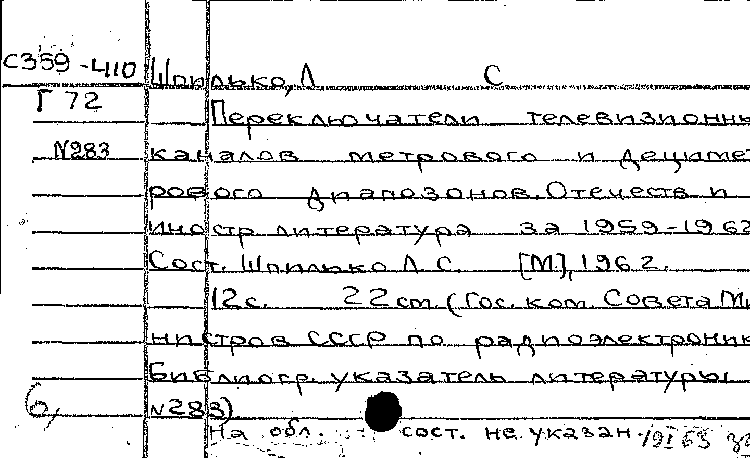 С359-410 Шпилько, Л С
Г 72 Переключатели телевизионны
N283 каналов метрового и децимет
рового диапазонов. Отечеств и
иностр литература за 1959-1962
Сост. Шпилько Л С. [М], 1962.
12 с. 22 см. (Гос. ком Совета Ми
нистров СССР по радиоэлектроник
Библиогр. указатель литературы
N283).
На обл. сост. не указан.